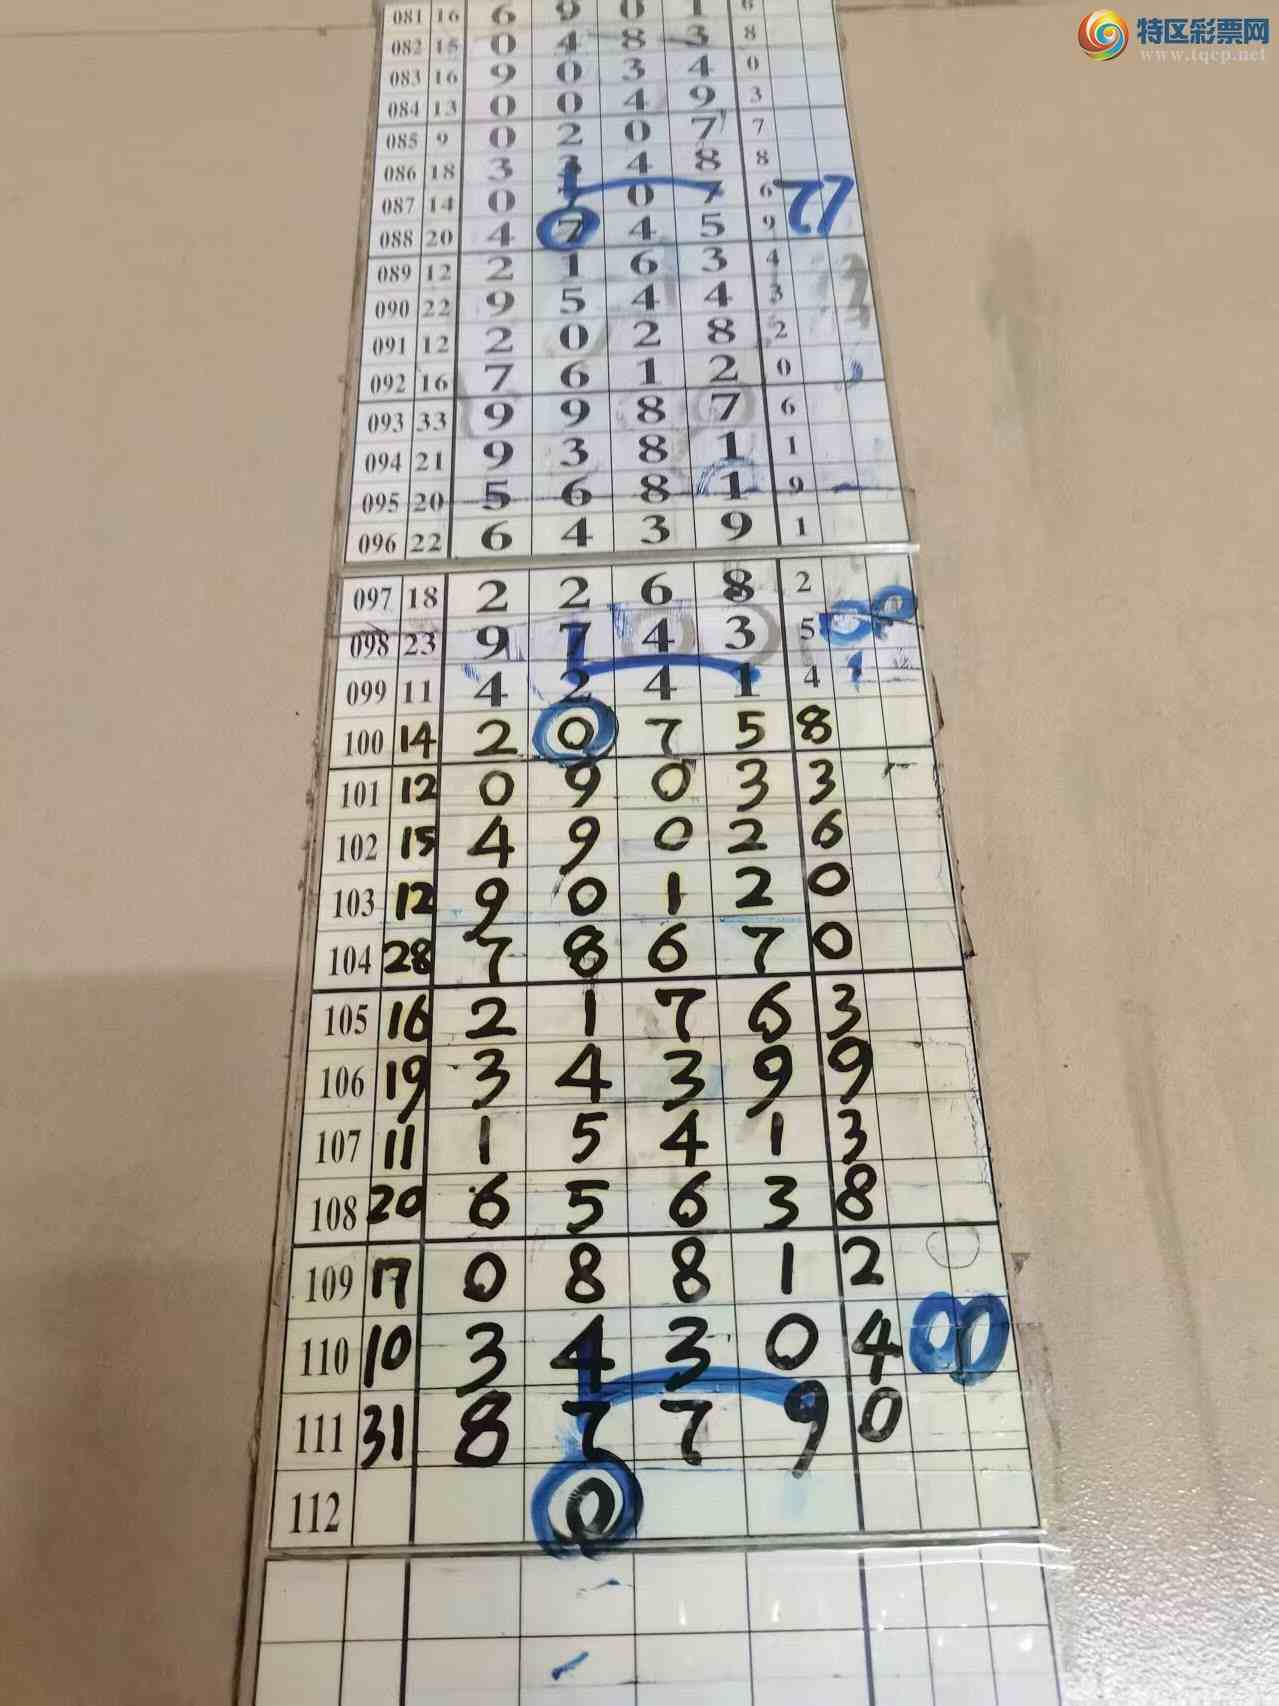 特区彩票网
www.tqcp.net
081 16 6 9 0 1 6
082 15 0 4 8 3 8
083 16 9 0 3 4 0
084 13 0 0 4 9 3
085 9 0 2 0 7 7
086 18 3 3 4 8 8
087 14 0 0 7 6 77
088 20 4 7 4 5 9
089 12 2 1 6 3 4
090 22 9 5 4 4 3
091 12 2 0 2 8 2
092 16 7 6 1 2 0
093 33 9 9 8 7 6
094 21 9 3 8 1 1
095 20 5 6 8 1 9
096 22 6 4 3 9 1
097 18 2 2 6 8 2
098 23 9 7 4 3 5 00
099 11 4 2 4 1 4
100 14 2 0 7 5 8
101 12 0 9 0 3 3
102 15 4 9 0 2 6
103 12 9 0 1 2 0
104 28 7 8 6 7 0
105 16 2 1 7 6 3
106 19 3 4 3 9 9
107 11 1 5 4 1 3
108 20 6 5 6 3 8
109 17 0 8 8 1 2
110 10 3 4 3 0 4 00
111 31 8 7 7 9 0
112 0